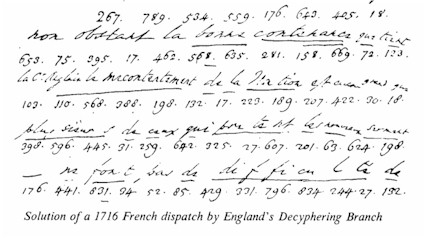 267. 789. 534. 559. 176. 643. 425. 18.
non obstant la bonne contenance que tient
653. 75. 295. 17. 462. 568. 635. 281. 158. 669. 72. 133.
la le mecontentement de la Nation est
103. 110. 568. 388. 198. 132. 17. 223. 189. 207. 422. 30. 18.
plusieurs de ceux qui les
398. 596. 445. 31. 259. 642. 325. 27. 607. 201. 63. 624. 198.
ne font pas de difficulté de
176. 441. 831. 34. 52. 85. 429. 331. 796. 834. 244. 27. 132.
Solution of a 1716 French dispatch by England's Decyphering Branch